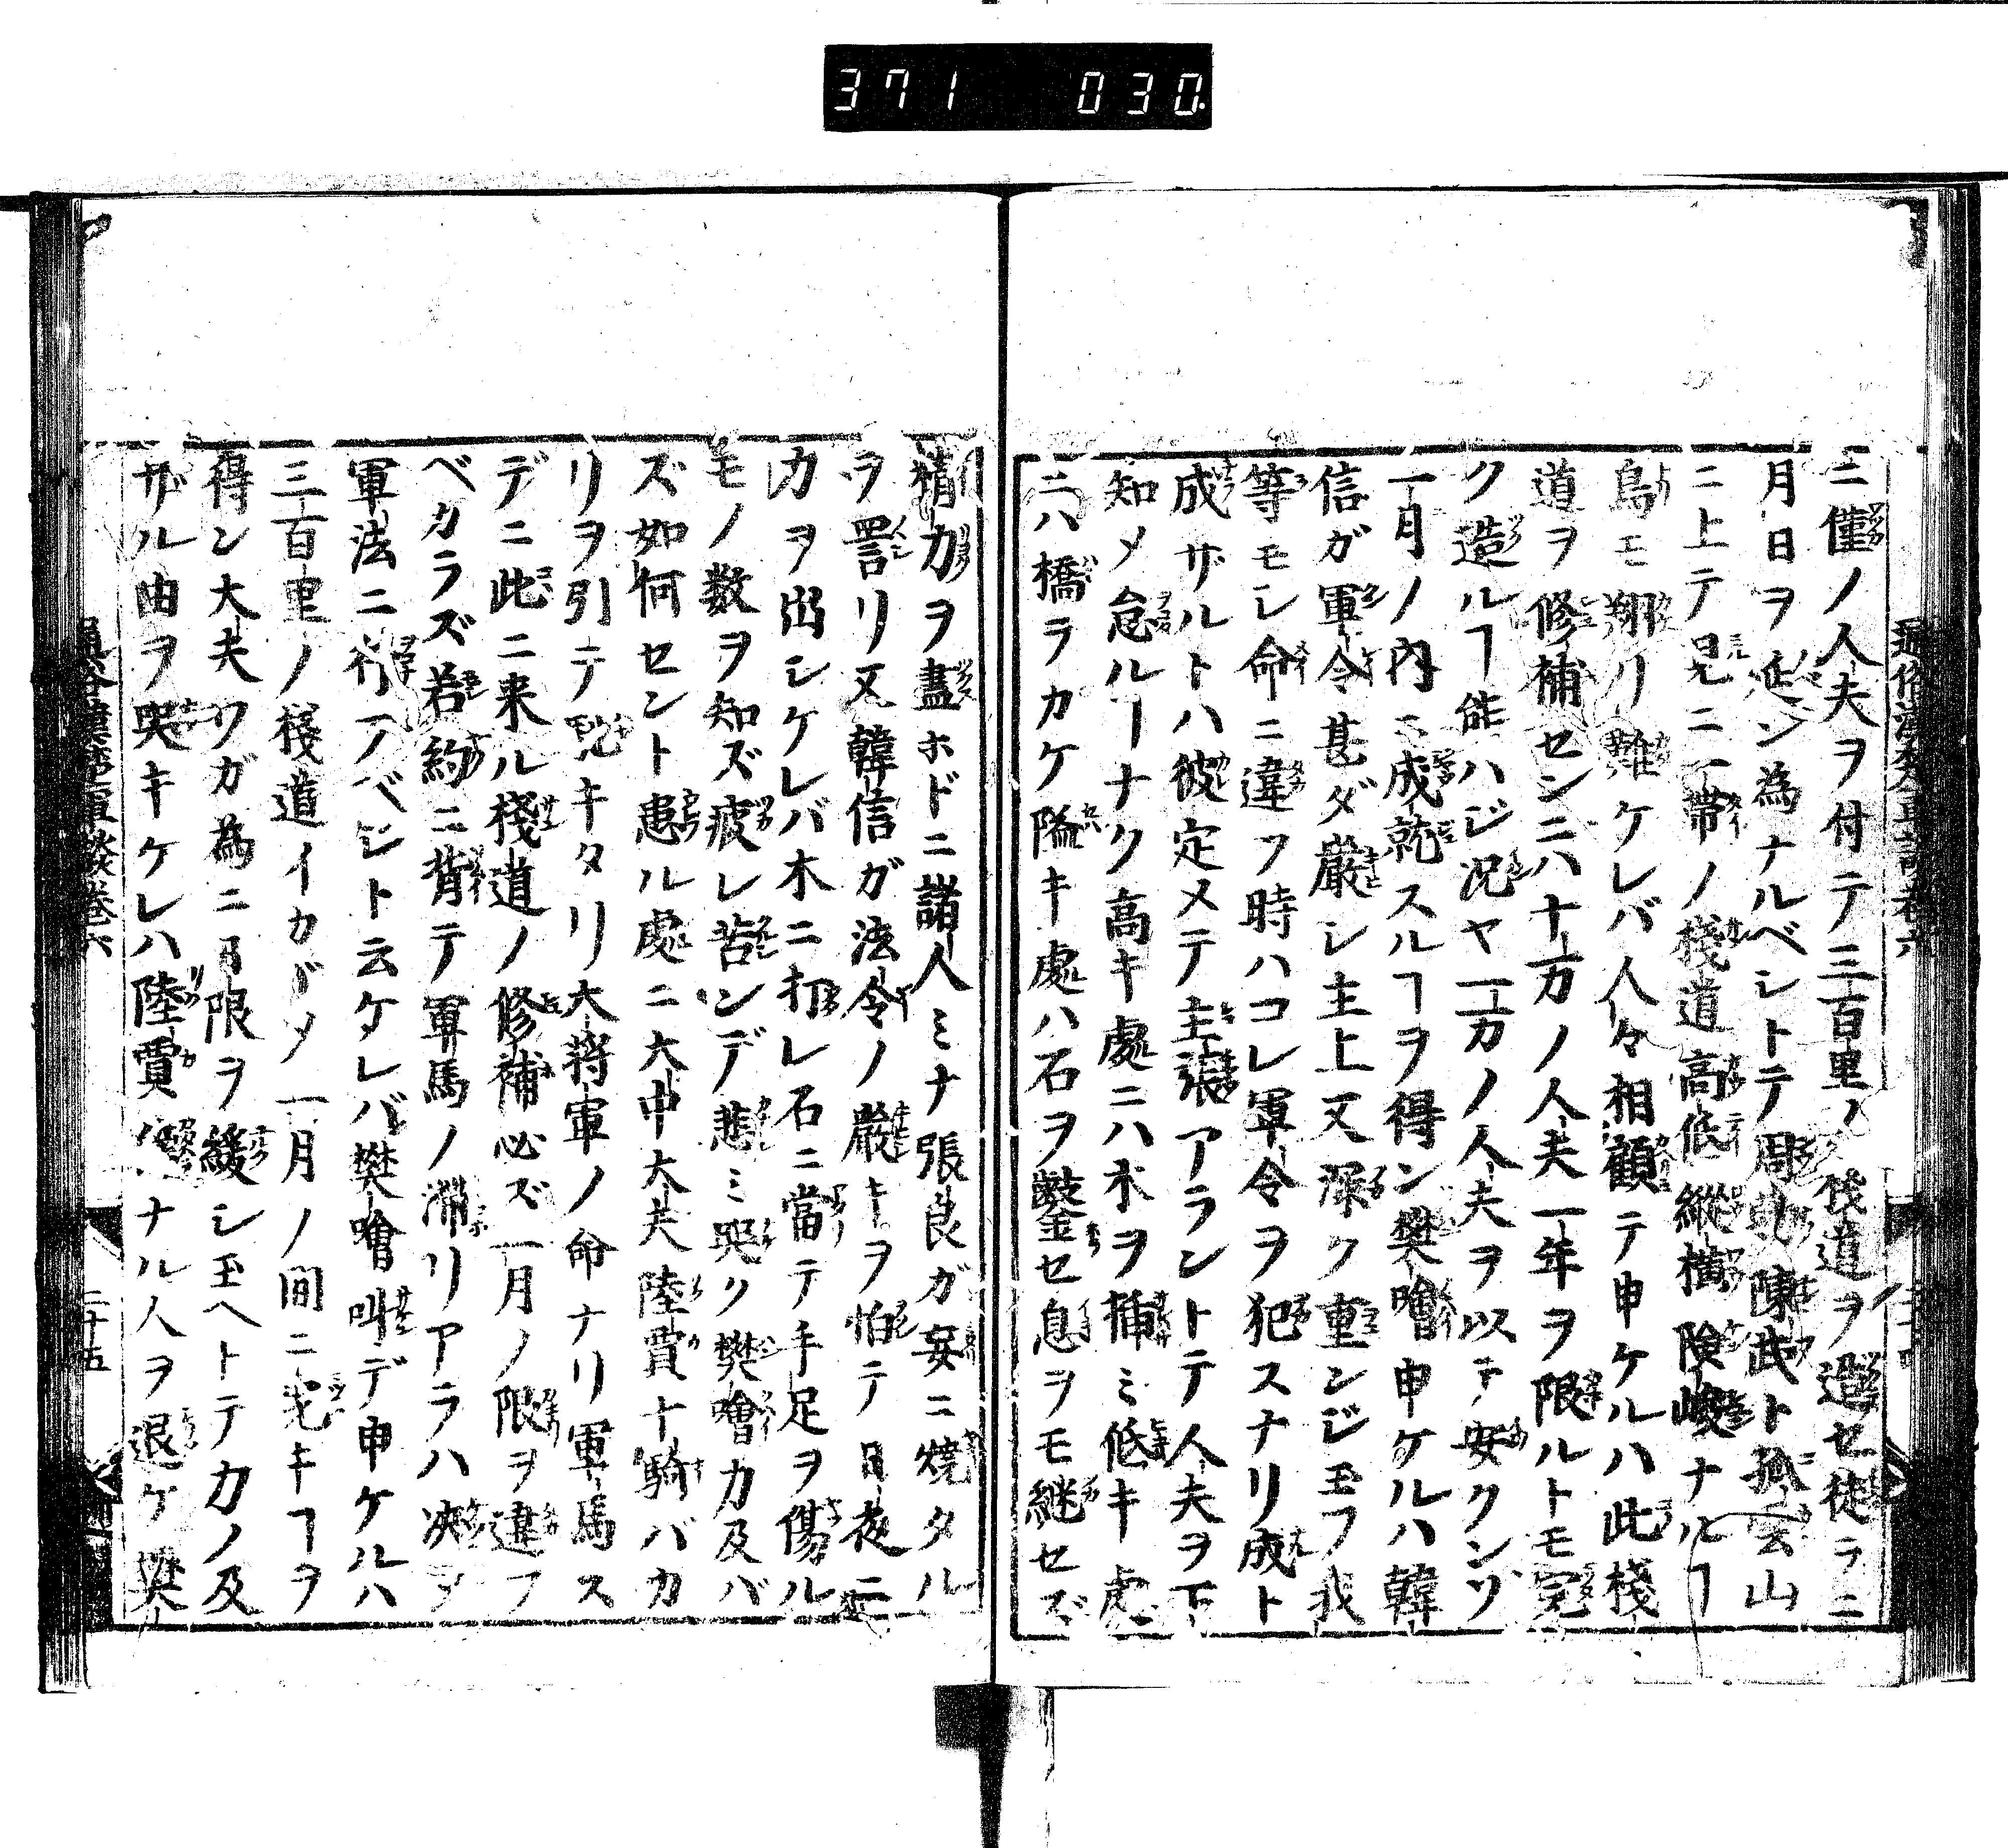 371 030
ニ僅ノ人夫ヲ付テ三百里ノ棧道ヲ造セ徒ラニ
月日ヲ延ン為ナルベシトテ周勃陳武ト孤云山
ニ上テ見ニ一帯ノ棧道高低縱横險峻ナルヿ
鳥モ翔リ難ケレバ人々相顧テ申ケルハ此棧
道ヲ修補センニハ十万ノ人夫一年ヲ限ルトモ完
ク造ルヿ能ハジ况ヤ一万ノ人夫ヲ以テ安クンゾ
一月ノ内ニ成就スルヿヲ得ン樊噲申ケルハ韓
信ガ軍令甚ダ嚴シ主上又深ク重ンジ玉フ我
等モシ命ニ違フ時ハコレ軍令ヲ犯スナリ成ト
成ザルトハ彼定メテ主張アラントテ人夫ヲ下
知メ怠ルヿナク高キ處ニハ木ヲ挿ミ低キ處ニ
ニハ橋ラカケ隘キ處ハ石ヲ鑿セ息ヲモ継セズ
精力ヲ盡ホドニ諸人ミナ張良ガ妄ニ燒タル
ヲ詈リ又韓信ガ法令ノ嚴キヲ怕テ日夜ニ
力ヲ出シケレバ木ニ打レ石ニ當テ手足ヲ傷ル
モノ数ヲ知ズ疲レ苦ンデ悲ミ哭ク樊噲力及バ
ズ如何セント患ル處ニ大中大夫陸賈十騎バカ
リヲ引テ馳キタリ大將軍ノ命ナリ軍馬ス
デニ此ニ来ル棧道ノ修補必ズ一月ノ限ヲ違フ
ベカラズ若約ニ背テ軍馬ノ滯リアラハ决メ
軍法ニ行アベシト云ケレバ樊噲叫デ申ケルハ
三百里ノ棧道イカヾメ一月ノ間ニ完キヿヲ
得ン大夫ワガ為ニ日限ヲ緩シ玉ヘトテ力ノ及
ザル由ヲ哭キケレハ陸賈ハナル人ヲ退ケ樊
通俗漢楚軍談卷六
二十五